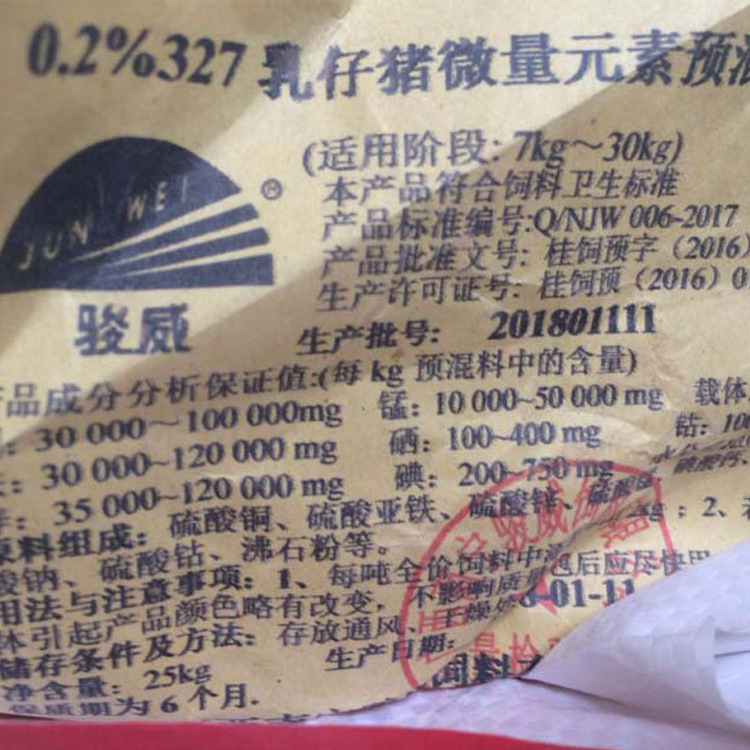 0.2%327 乳仔猪微量元素预
JUN WEI
®
骏威
(适用阶段: 7kg～30kg)
本产品符合饲料卫生标准
产品标准编号:Q/NJW 006-2017
产品批准文号: 桂饲预字（2016）
生产许可证号: 桂饲预（2016）0
生产批号: 201801111
品成分分析保证值:(每 kg 预混料中的含量)
: 30 000～100 000mg 锰: 10 000~50 000 mg 载体
: 30 000~120 000 mg 硒: 100~400 mg 钴: 100
: 35 000~120 000 mg 碘: 200~750 mg
原料组成: 硫酸铜、硫酸亚铁、硫酸锌、硫酸
酸钠、硫酸钴、沸石粉等。
用法与注意事项: 1、每吨全价饲料中 ; 2、
体引起产品颜色略有改变, 不影响质量 后应尽快用
储存条件及方法: 存放通风、干燥处
净含量: 25kg 生产日期: 8-01-11
保质期为 6 个月.
骏威